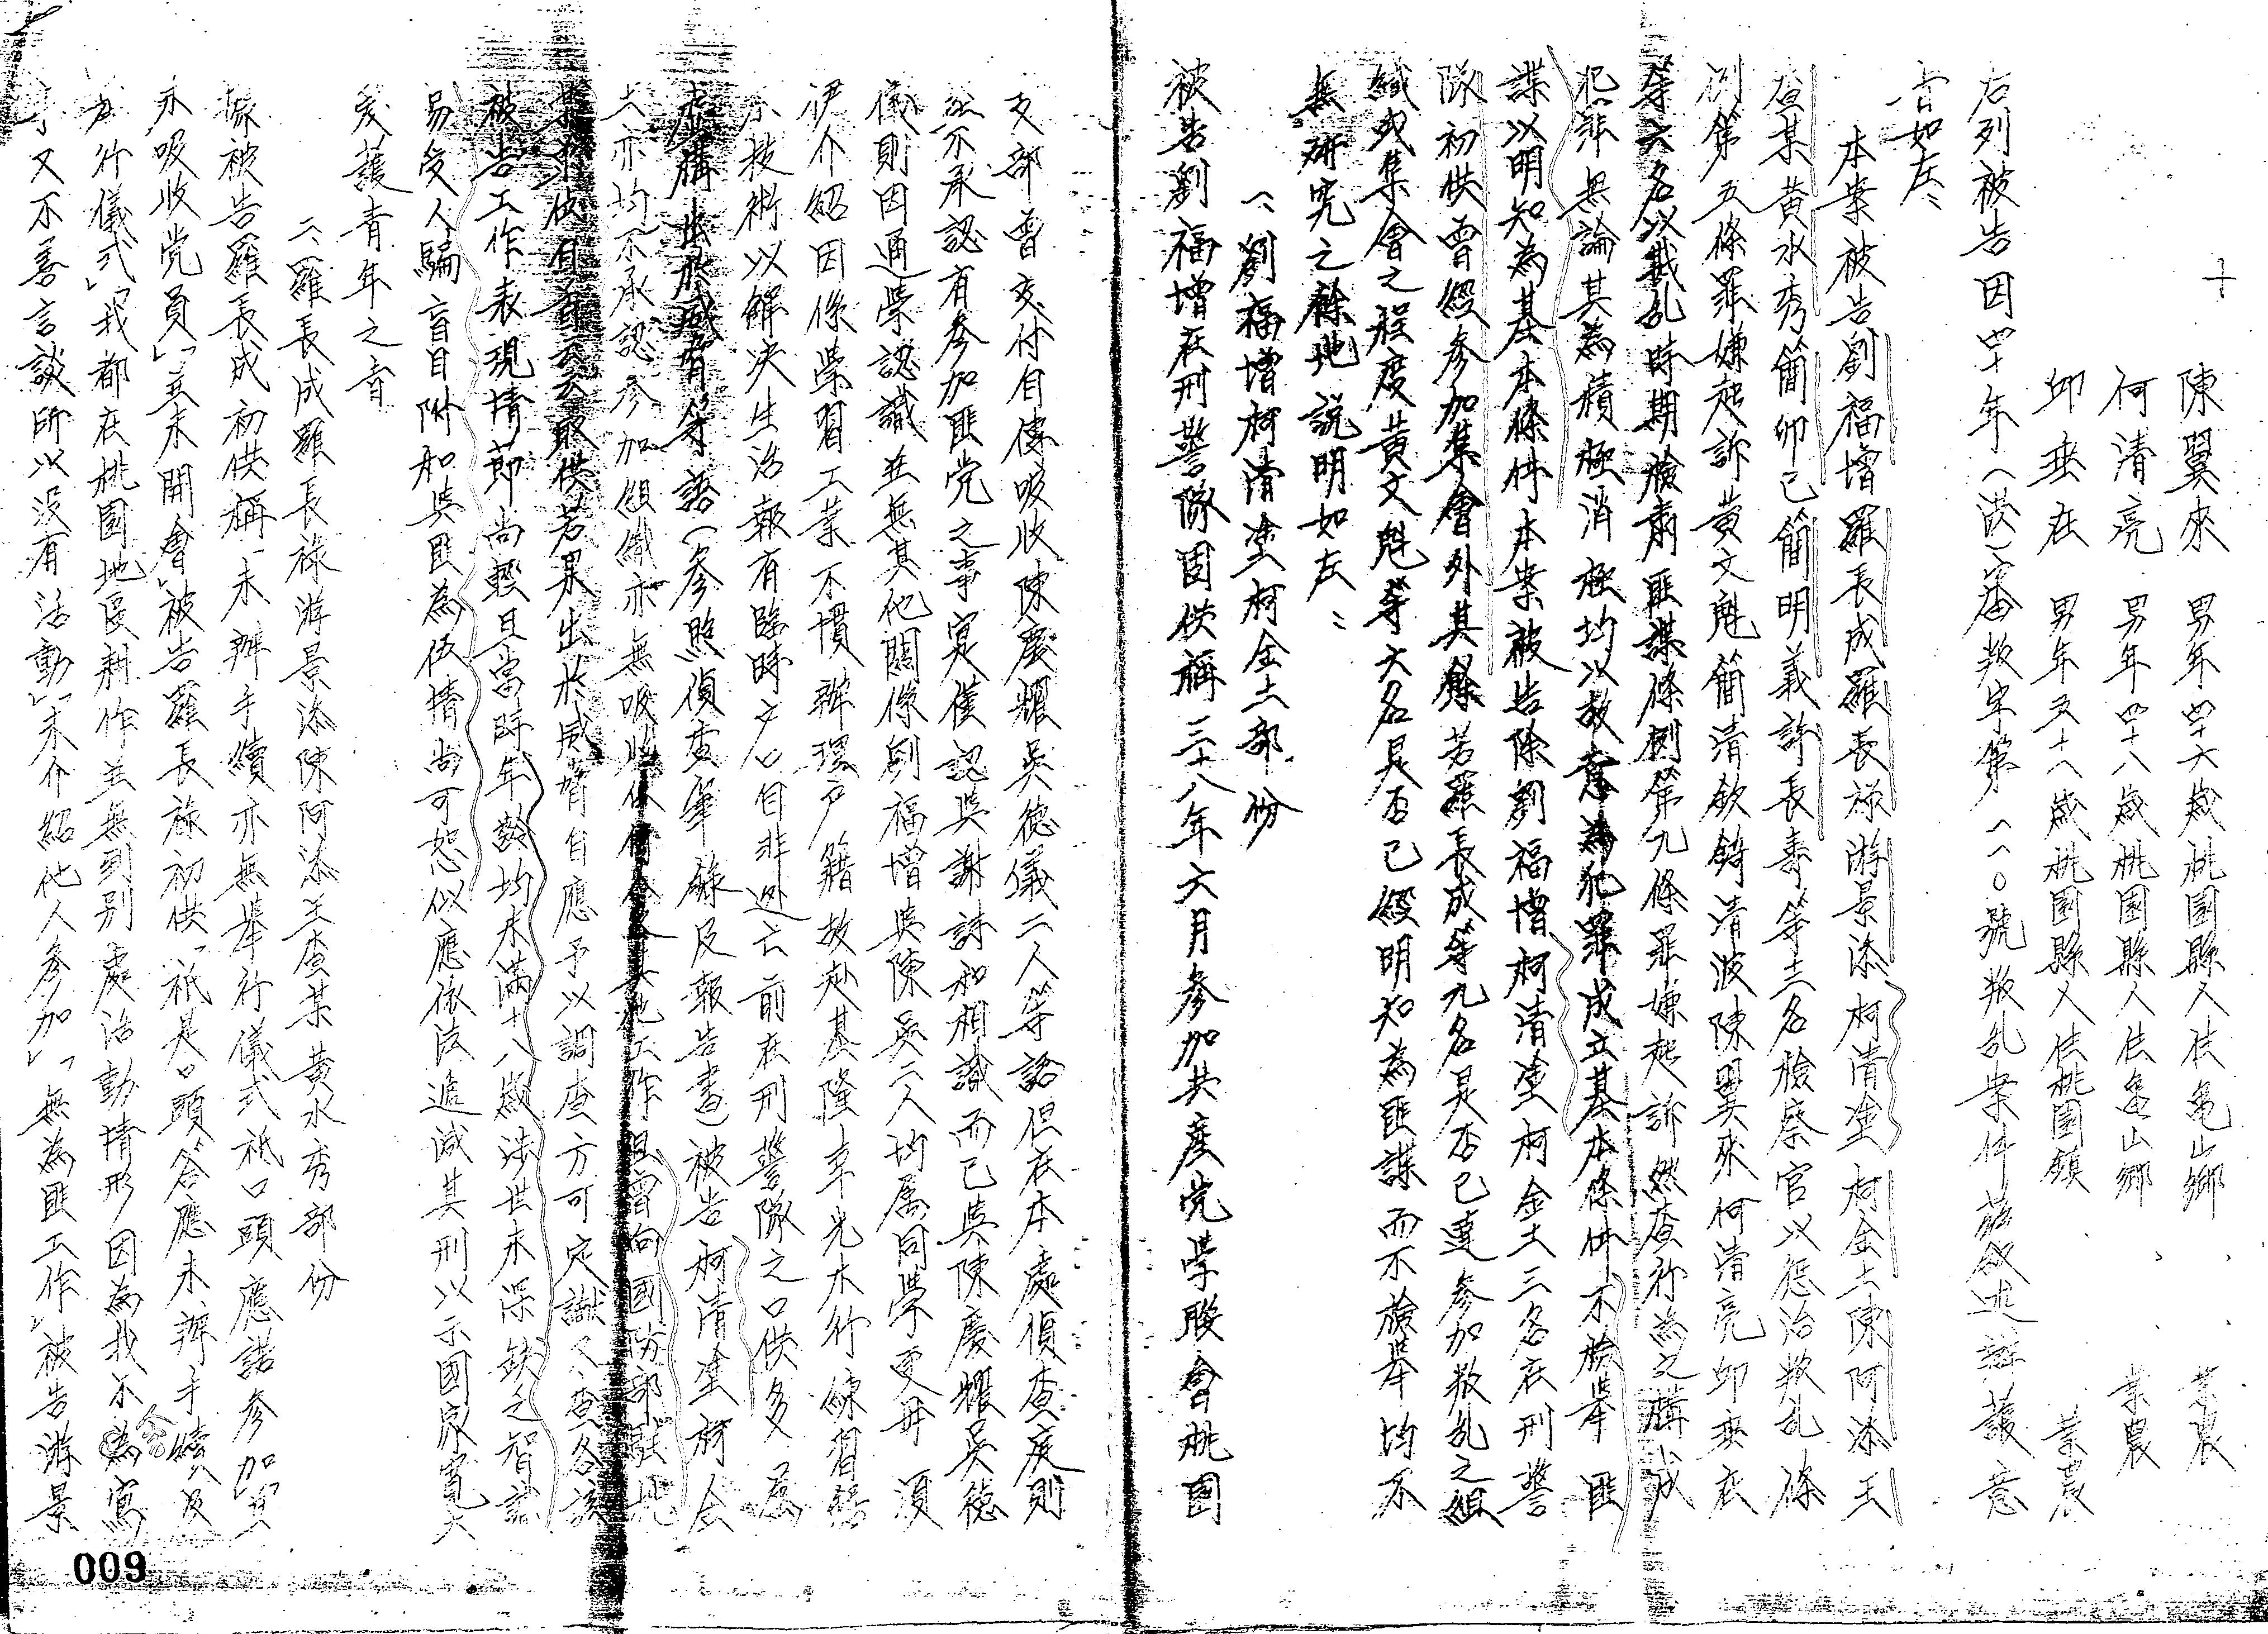 陳翼來 男年四十六歲桃園縣人住龜山鄉 業農
何清亮 男年四十八歲桃園縣人住龜山鄉 業農
邱垂在 男年五十八歲桃園縣人住桃園鎮 業農
右列被告因四十年審叛字第一一〇號叛乱案件茲叙述辯護意
旨如左：
本案被告劉福增羅長成羅長祿游景添柯清塗柯金土陳阿添王
查某黃水秀簡卯已簡明義許長壽等十三名檢察官以懲治叛乱條
例第五條罪嫌起訴黃文魁簡清欽錡清波陳翼來何清亮邱垂在
等六名以戡乱時期檢肅匪諜條例第九條罪嫌起訴然查行為之構成
犯罪無論其為積極消極均以故意為犯罪成立基本條件不檢舉匪
諜以明知為基本條件本案被告除劉福增柯清塗柯金土三名在刑警
隊初供曾經參加集會外其餘若羅長成等九名是否已達參加叛乱之組
織或集會之程度黃文魁等六名是否已經明知為匪諜而不檢舉均不
無研究之餘地說明如左：
一、劉福增柯清塗柯金土部份
被告劉福增在刑警隊固供稱三十八年六月參加共產党學聯會桃園
支部曾交付自傳吸收陳慶耀吳德儀二人等語但在本處偵查庭則
並不承認有參加匪党之事實僅認與謝詩和相識而已與陳慶耀吳德
儀則因通學認識並無其他關係劉福增與陳吳二人均属同學更毋須
伊介紹因係學習工業不慣辦理户籍故赴基隆幸光木行練習
小技術以解决生活報有臨時户口自非逃亡前在刑警隊之口供多属
虛構出於威脅等語（參照偵查筆錄及報告書）被告柯清塗柯金
土亦均不承認參加組織亦無吸收他人其他工作且曾向國防部
被告工作表現情節尚輕且當時年齡均未滿十八歲涉世未深缺乏智識
易受人騙盲目附和與匪為伍情尚可恕似應依法遞減其刑以示國家寬大
爱護青年之旨
二、羅長成羅長祿游景添陳阿添王查某黃水秀部份
據被告羅長成初供稱「未辦手續亦無舉行儀式祇口頭應諾參加」
「未吸收党員」「並未開會」被告羅長祿初供「祇是口頭答應未辦手續及
舉行儀式」「我都在桃園地區耕作並無到別處活動情形因為我不為寫
字又不善言談所以没有活動」「未介紹他人參加」「無為匪工作」被告游景
009